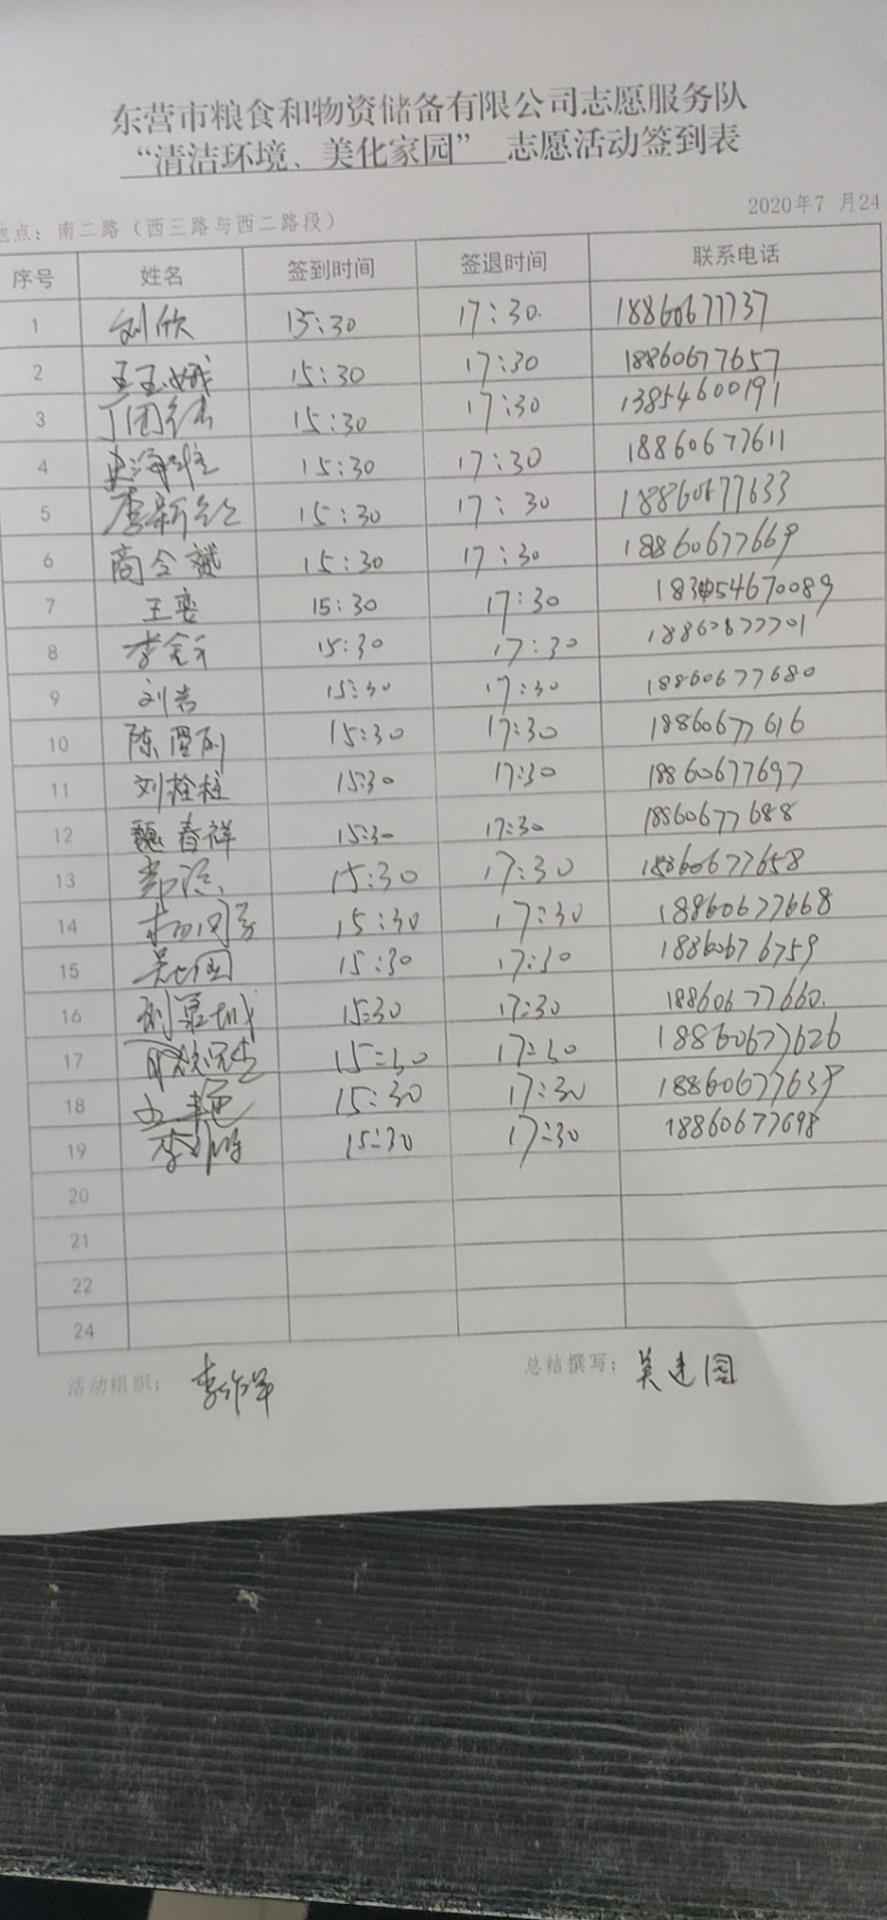 东营市粮食和物资储备有限公司志愿服务队
“清洁环境、美化家园” 志愿活动签到表
地点：南二路（西三路与西二路段） 2020年7 月24
序号 姓名 签到时间 签退时间 联系电话
1 刘欣 15:30 17:30. 18860677737
2 王玉娥 15:30 17:30 18860677657
3 15:30 17:30 13854600191
4 15:30 17:30 18860677611
5 15:30 17:30 18860677633
6 商令赟 15:30 17:30 18860677669
7 王娈 15:30 17:30
8 15:30 17:30 18860677701
9 刘吉 15:30 17:30 18860677680
10 15:30 17:30 18860677616
11 刘栓柱 15:30 17:30 18860677697
12 魏春祥 15:30 17:30 18860677688
13 15:30 17:30 18860677658
14 15:30 17:30 18860677668
15 吴建国 15:30 17:30 18860676759
16 15:30 17:30 18860677660.
17 15:30 17:30 18860677626
18 15:30 17:30 18860677639
19 15:30 17:30 18860677698
20
21
22
24
活动组织： 总结撰写：吴建国